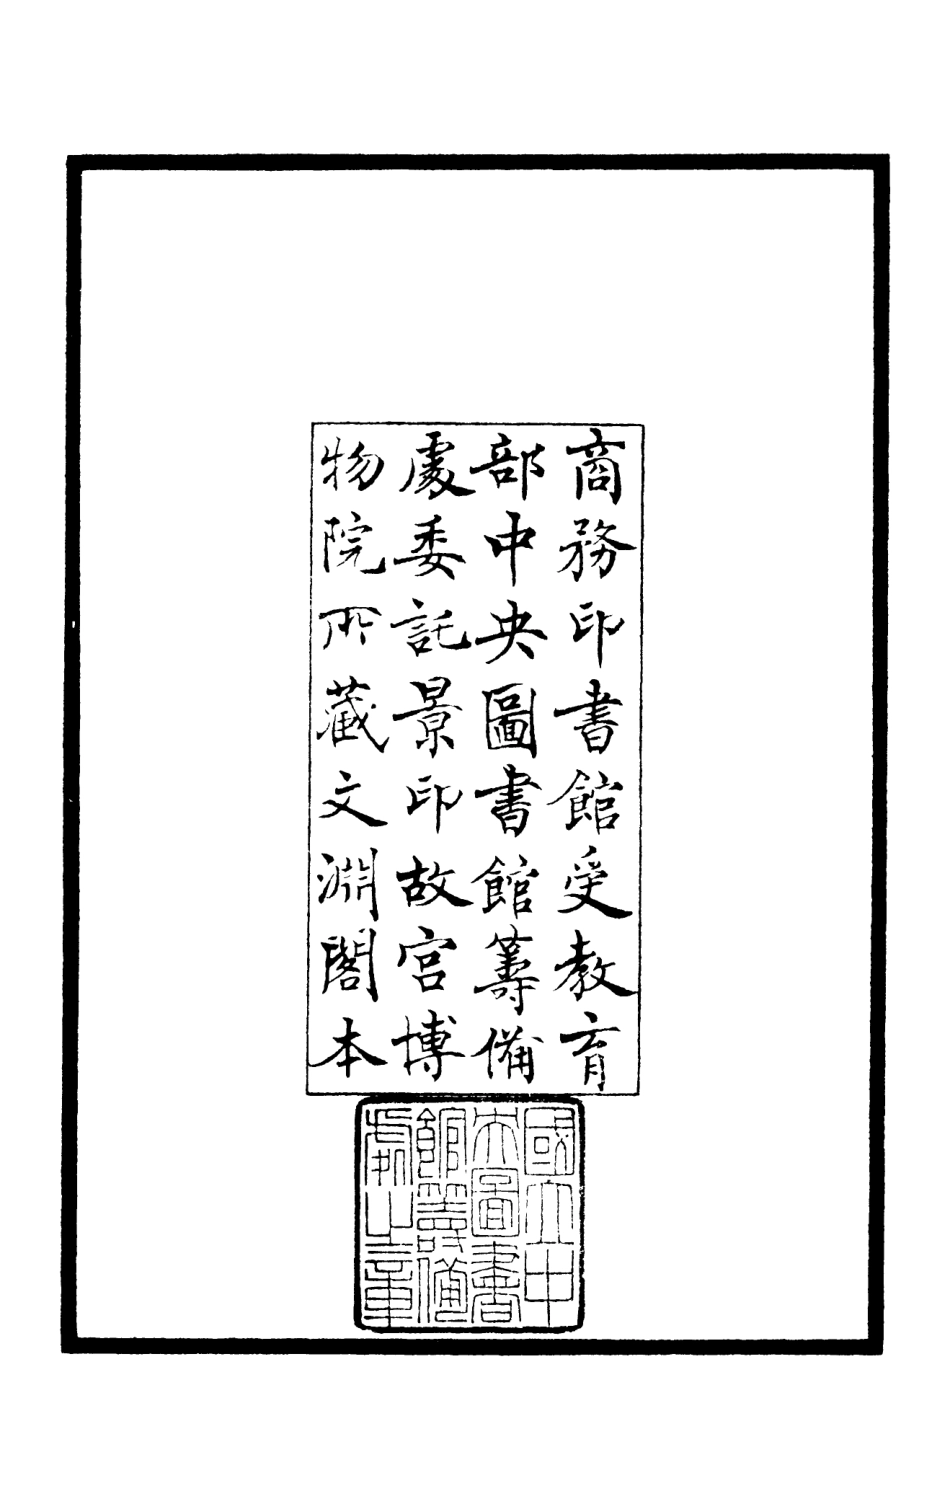 商務印書館受教育
部中央圖書館籌備
處委託景印故宮博
物院所藏文淵閣本
國立中
央圖書
館籌備
處之章